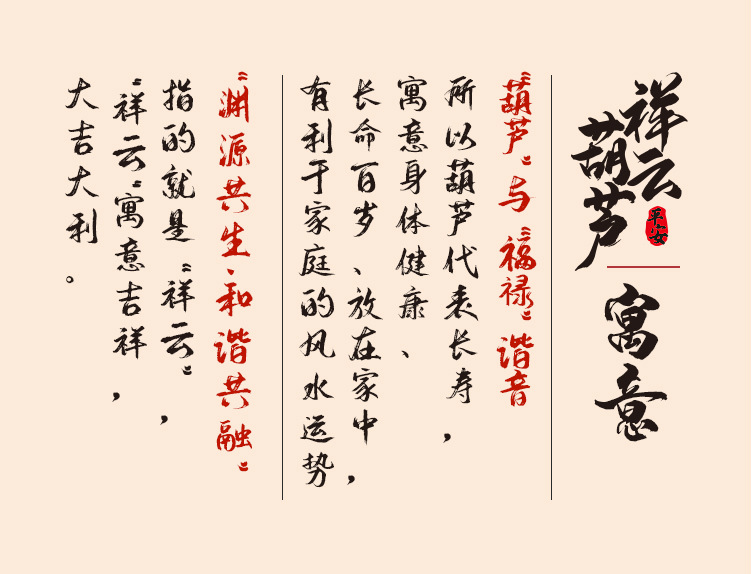 祥云
葫芦
平安
寓意
“葫芦”与“福禄”谐音
所以葫芦代表长寿，
寓意身体健康、
长命百岁、放在家中，
有利于家庭的风水运势
“渊源共生、和谐共融”
指的就是“祥云”，
“祥云”寓意吉祥，
大吉大利。